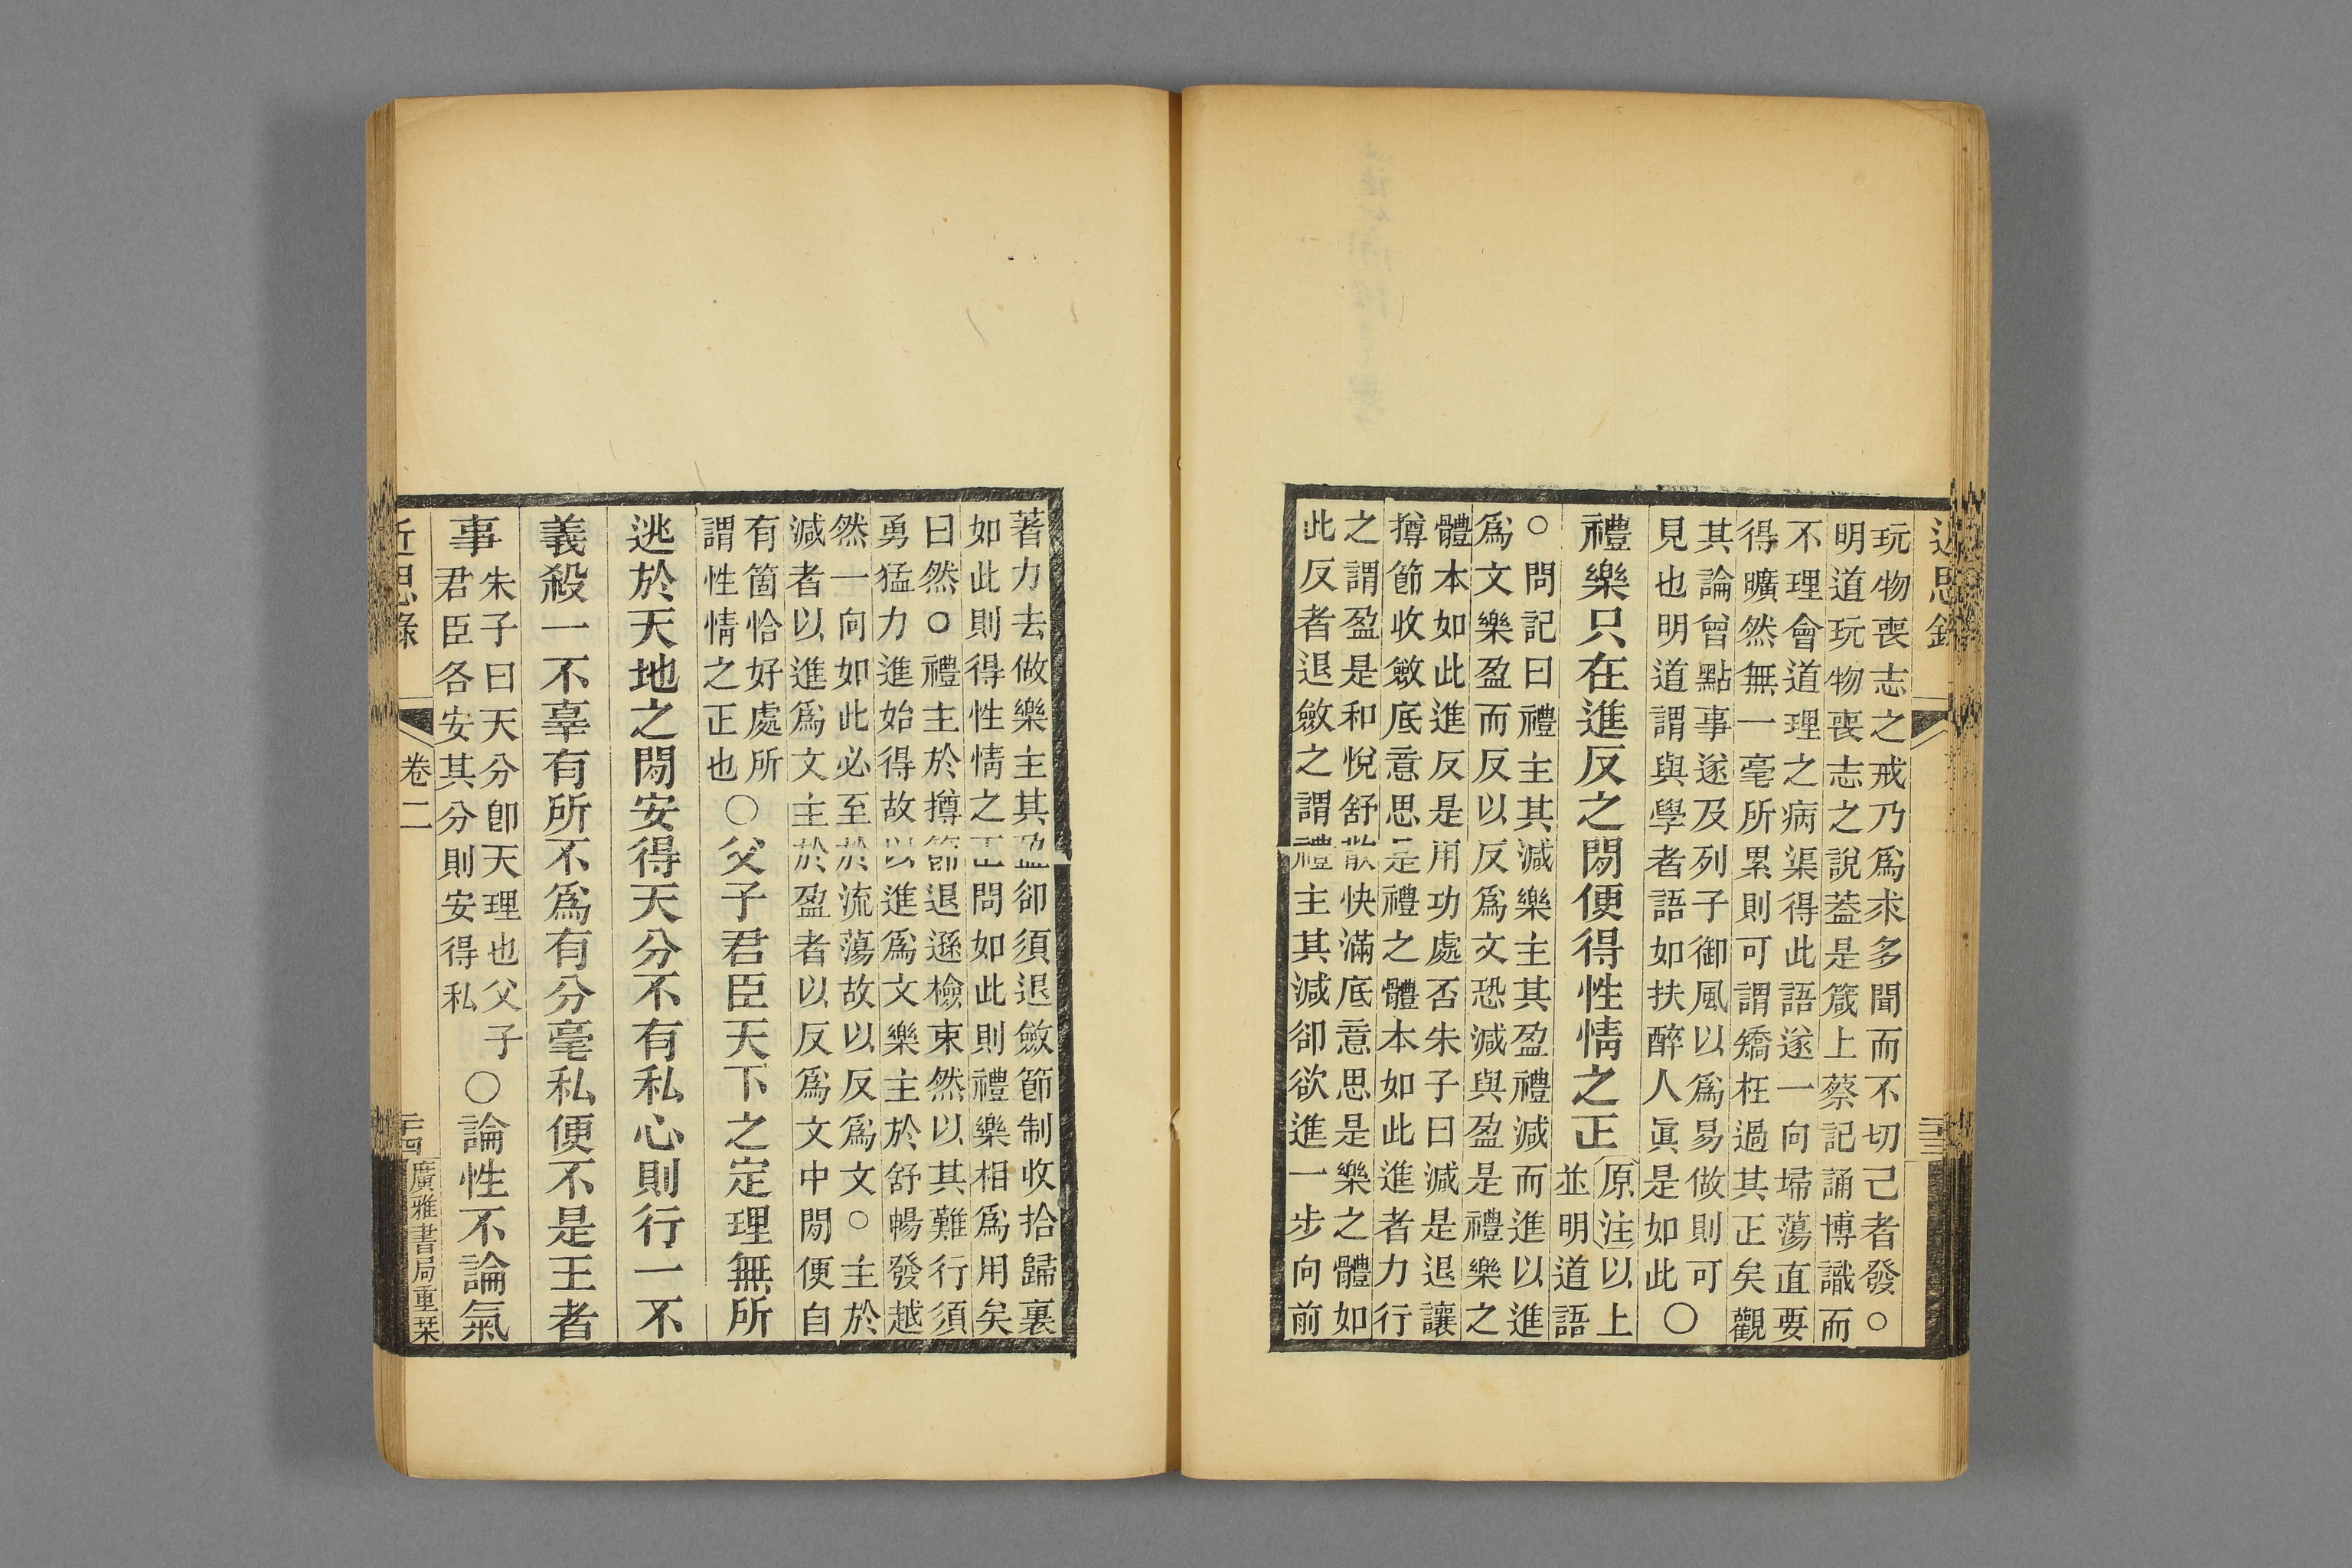 近思錄
三十三
玩物喪志之戒乃爲求多聞而不切己者發○
明道玩物喪志之說蓋是箴上蔡記誦博識而
不理會道理之病渠得此語遂一向埽蕩直要
得曠然無一毫所累則可謂矯枉過其正矣觀
其論曾點事遂及列子御風以爲易做則可
見也明道謂與學者語如扶醉人眞是如此○
禮樂只在進反之閒便得性情之正
原注以上
並明道語
○問記曰禮主其減樂主其盈禮減而進以進
爲文樂盈而反以反爲文恐減與盈是禮樂之
體本如此進反是用功處否朱子曰減是退讓
撙節收斂底意思是禮之體本如此進者力行
之謂盈是和悅舒散快滿底意思是樂之體如
此反者退斂之謂禮主其減卻欲進一步向前
著力去做樂主其盈卻須退斂節制收拾歸裏
如此則得性情之正問如此則禮樂相爲用矣
曰然○禮主於撙節退遜檢束然以其難行須
勇猛力進始得故以進爲文樂主於舒暢發越
然一向如此必至於流蕩故以反爲文○主於
減者以進爲文主於盈者以反爲文中閒便自
有箇恰好處所
謂性情之正也
○父子君臣天下之定理無所
逃於天地之閒安得天分不有私心則行一不
義殺一不辜有所不爲有分毫私便不是王者
事
朱子曰天分卽天理也父子
君臣各安其分則安得私
○論性不論氣
近思錄
卷二
三十四
廣雅書局重栞